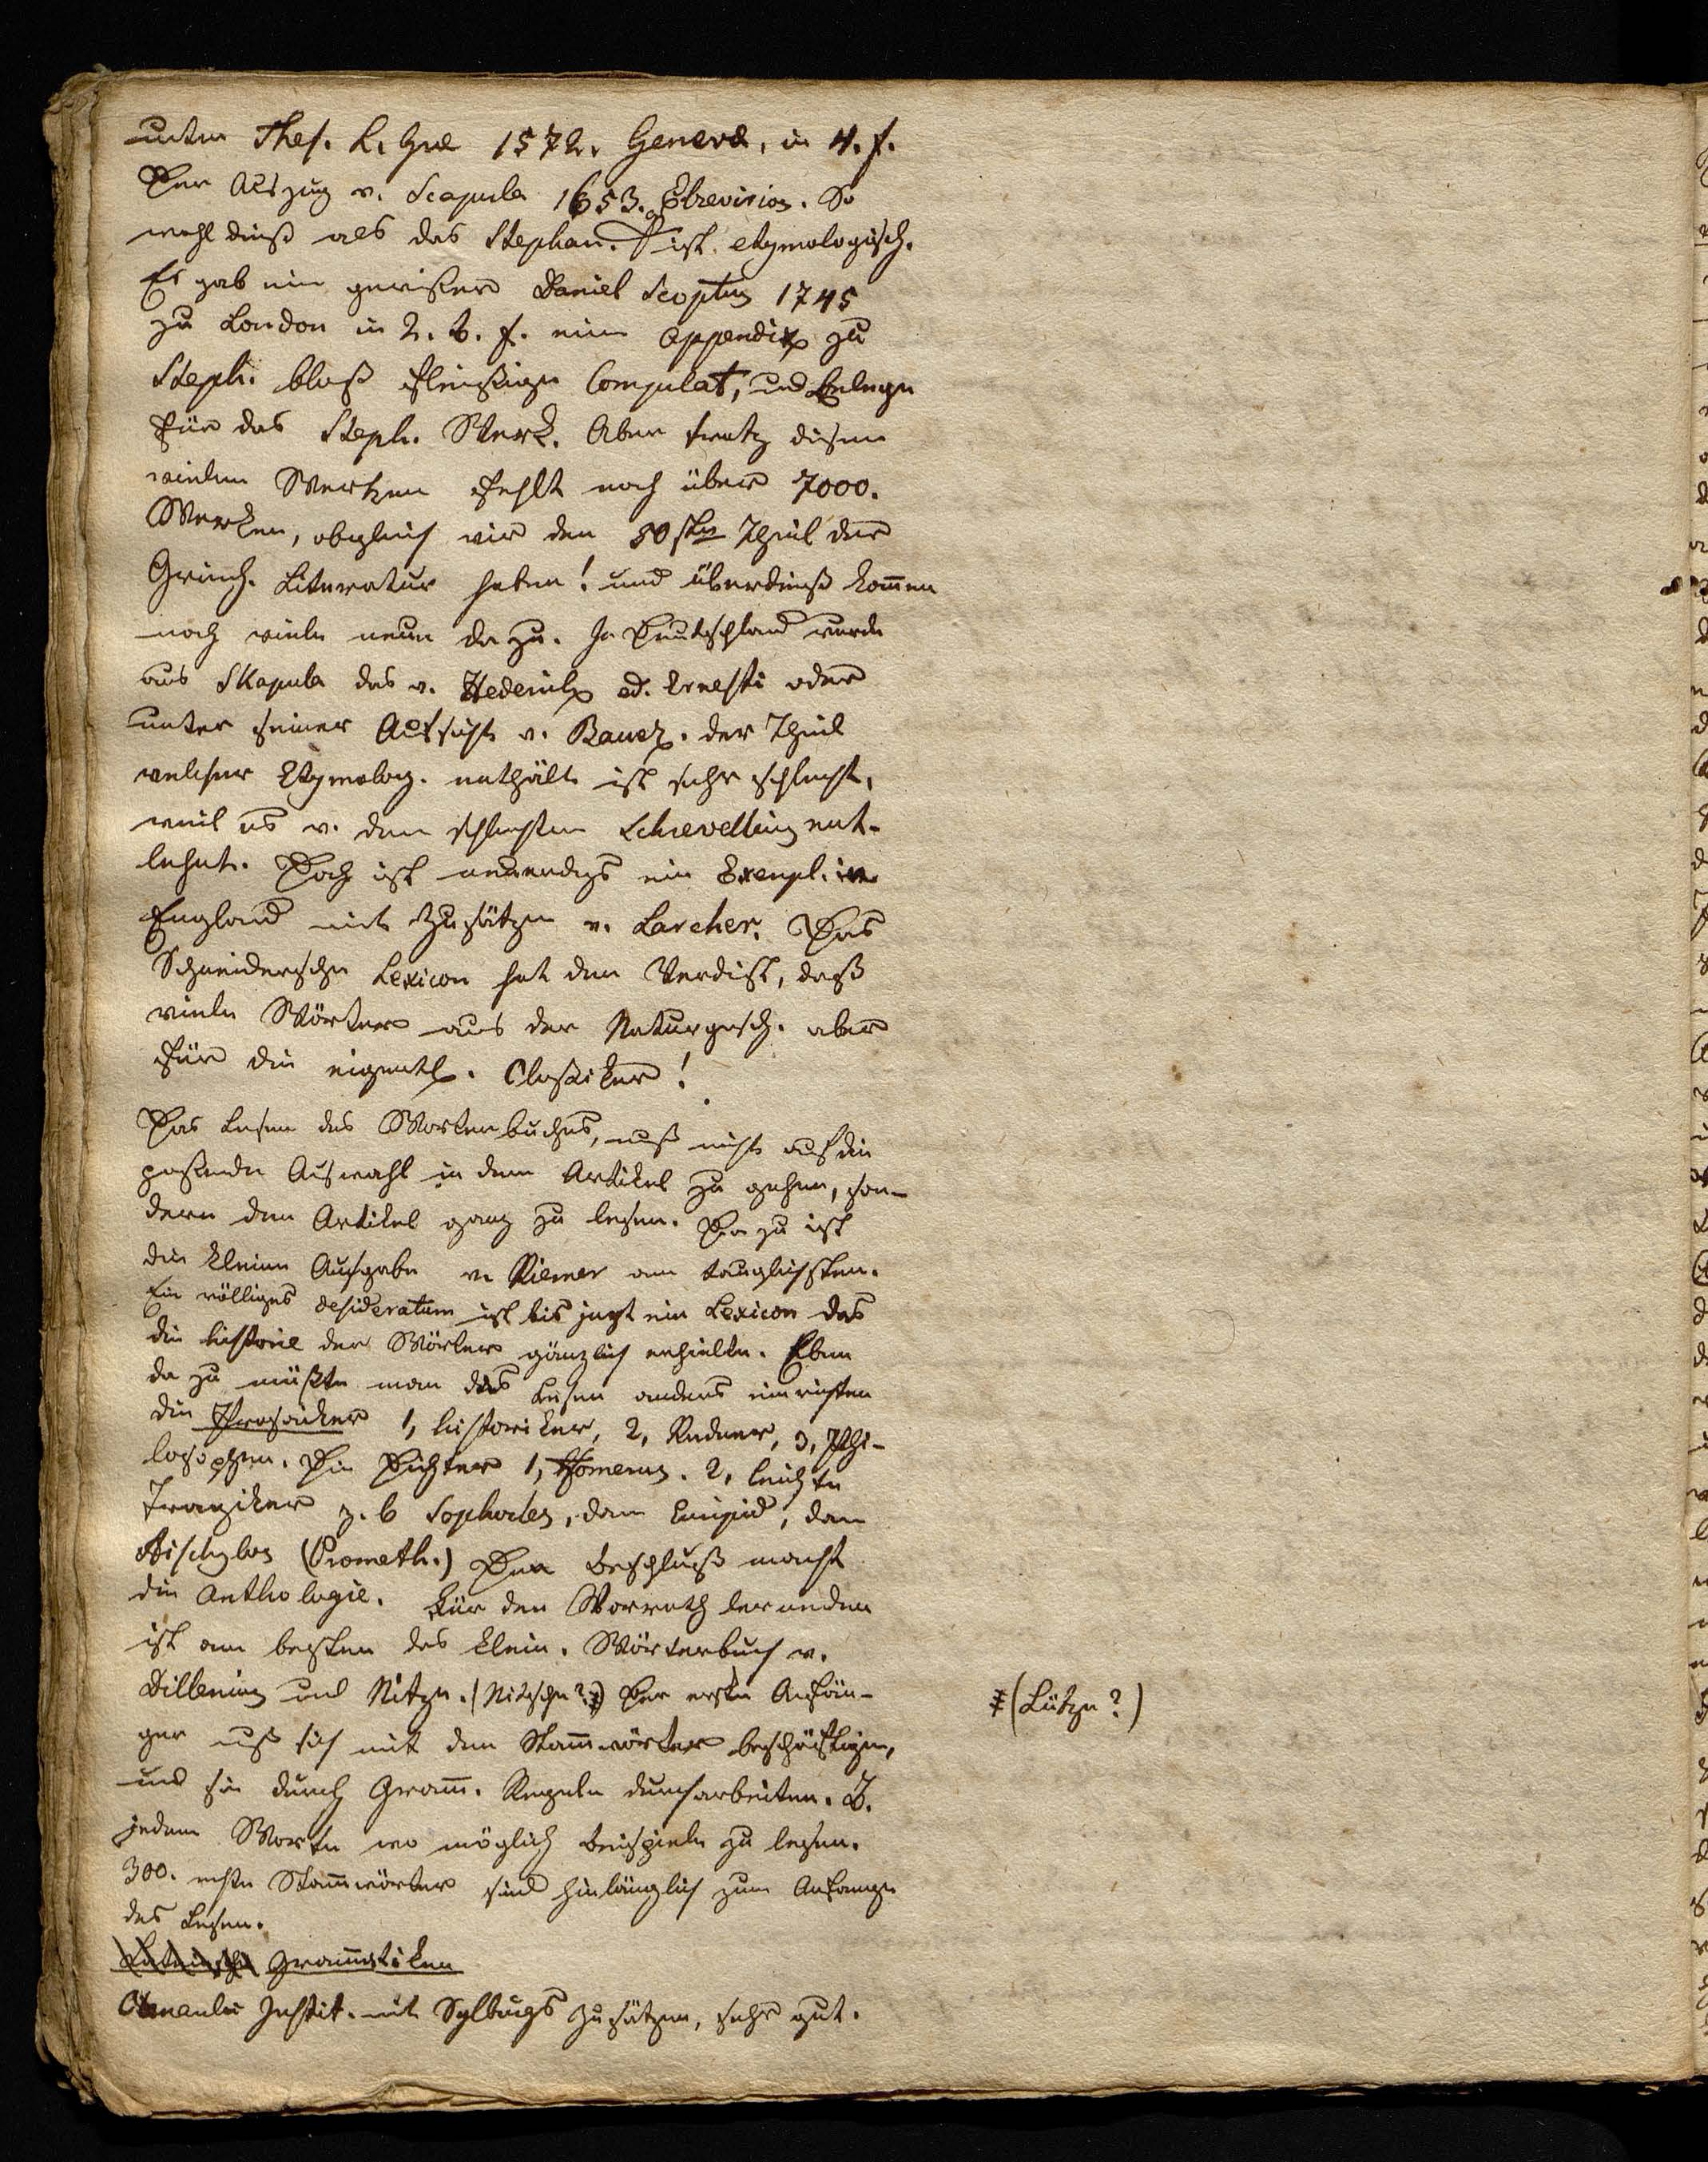 unter Thes. L. Græ 1572. Genevæ, in 4. f.
Der Auszug v. Scapula 1653. Elzevirios. So
wohl dieß als das Stephan. ist etymologisch.
Es gab ein gewißer Daniel Scoptus 1745
zu London in 2. B. f. eine Appendix zu
Steph. bloß fleißige Compilat, und Belege
für das Steph. Werk. Aber trotz diesen
vielen Werken fehlt noch über 7000.
Werken, obgleich wir den 50sten Theil der
Griech. Literatur haben! und überdieß kom̄en
noch viele neue dazu. In Deutschland wurde
aus Skapula das v. Hederich ed. Ernesti oder
unter seiner Aufsicht v. Bauer. der Theil
welcher Etymolog. enthält ist sehr schlecht,
weil es v. dem schlechten Schrevelling ent-
lehnt. Doch ist neuerdgs ein Exempl. in
England mit Zusätzen v. Larcher. Das
Schneidersche Lexicon hat den Verdist, daß
viele Wörter aus der Naturgesch. aber
für die eigentl. Classiker!
Das Lesen des Worterbuches, muß nicht auf die
paßende Auswahl in dem Artikel zu gehen, son-
dern den Artikel ganz zu lesen. Da zu ist
die kleine Ausgabe v. Riemer am tauglichsten.
Ein völliges desideratum ist bis jezt ein Lexicon das
die historie der Wörter gänzlich enhielte. Eben
da zu müßte man das Lesen anders einrichten
die Prosaiker 1, historiker, 2, Redner, 3, Phi-
losophen. Die Dichter 1, Homerus. 2, leichte
Tragiker z. b Sophocles, dann Euripid, dann
Aischylos (Prometh.) Den Beschluß macht
die Anthologie. Für den Vorrath lernenden
ist am besten das klein. Wörterbuch v.
Dillenius und Nitze. (Nitzsche?) Der erste Anfän-
ger muß sich mit den Stam̄wörter beschäftigen,
und sie durch Gram̄. Regeln durcharbeiten. Z.
jedem Worte wo möglich Beispiele zu lesen.
300. rechte Stam̄wörter sind hinlänglich zum Anfange
des Lesen.
Lateinische Gram̄atiken
Clenardi Instit. mit Sylburgs Zusätzen, sehr gut.
(Lütze?)